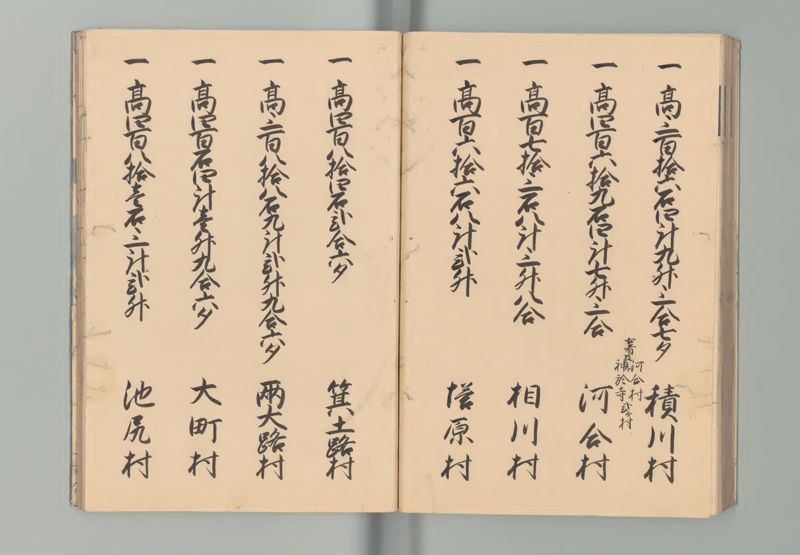 一 高三百拾六石四斗九升三合七夕 積川村
一 高四百六拾九石四斗七升三合 河合村
河合村
神於寺弐村
一 高百七拾三石八斗三升八合 相川村
一 高百六拾六石八斗弐升 塔原村
一 高四百八拾四石弐合六夕 箕土路村
一 高三百八拾八石九斗弐升九合六夕 両大路村
一 高四百石四斗壱升九合六夕 大町村
一 高四百八拾壱石三斗弐升 池尻村